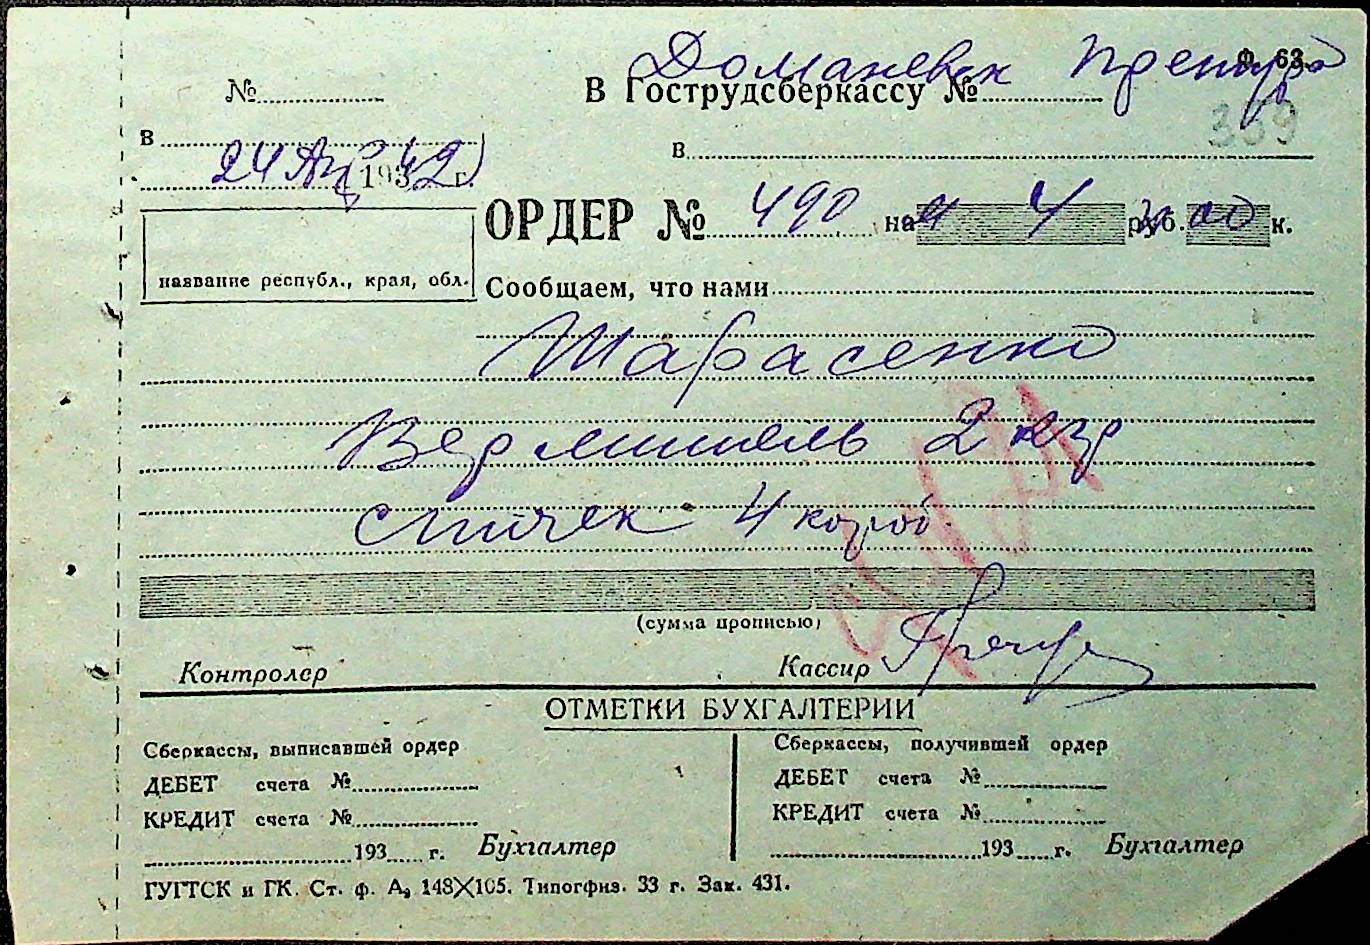 Ф. 63.
Доманевск Претура
№
В Гострудсберкассу №
359
в
в
24 Апр 1942 г.
ОРДЕР № 490 на 4 руб. 00 к.
название республ., края, обл.
Сообщаем, что нами
Тарасенко
Вермишель 2 кгр
спичек 4 короб.
(сумма прописью)
Контролер
Кассир
ОТМЕТКИ БУХГАЛТЕРИИ
Сберкассы, выписавшей ордер
Сберкассы, получившей ордер
ДЕБЕТ счета №
ДЕБЕТ счета №
КРЕДИТ счета №
КРЕДИТ счета №
193 г. Бухгалтер
193 г. Бухгалтер
ГУГТСК и ГК. Ст. ф. А, 148X105. Типогфиз. 33 г. Зак. 431.